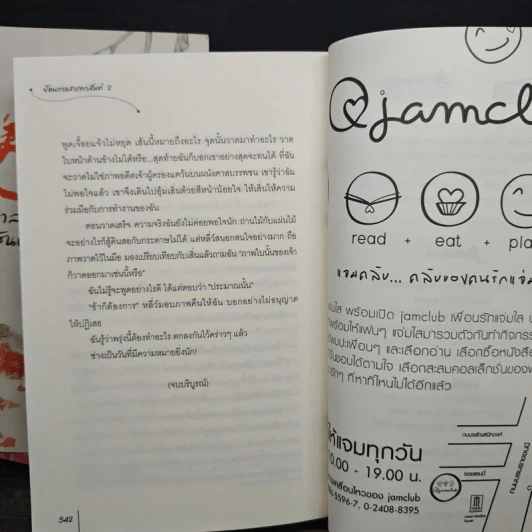 ย้อนกาลสารทวสันต์ ๕
พูดเจื้อยแจ้วไม่หยุด เส้นนี้หมายถึงอะไร จุดนั้นวาดมาทำอะไร วาด
ใบหน้าด้านข้างไม่ได้หรือ...สุดท้ายฉันก็บอกเขาอย่างสุดจะทนได้ ที่ฉัน
จะวาดไม่ใช่ภาพอดีตเจ้าผู้ครองแคว้นบนผนังศาลบรรพชน เขารู้ว่าฉัน
ไม่พอใจแล้ว เขาจึงเดินไปอุ้มเส้นด้วยสีหน้าน้อยใจ ให้เส้นให้ความ
ร่วมมือกับการทำงานของฉัน
ตอนวาดเสร็จ ความจริงฉันยังไม่ค่อยพอใจนัก ถ่านไม้กับแผ่นไม้
จะอย่างไรก็สู้ดินสอกับกระดาษไม่ได้ แต่หลี่ว์สนอกสนใจอย่างมาก ถือ
ภาพวาดไว้ในมือ มองเปรียบเทียบกับเส้นแล้วถามฉัน "ภาพใบนั้นของเจ้า
ก็วาดออกมาเช่นนี้หรือ"
ฉันไม่รู้จะพูดอย่างไรดี ได้แต่ตอบว่า "ประมาณนั้น"
"ข้าก็ต้องการ" หลี่ว์มอบภาพคืนให้ฉัน บอกอย่างไม่อนุญาต
ให้ปฏิเสธ
ฉันรู้ว่าพรุ่งนี้ต้องทำอะไร ตกลงกันไว้คร่าวๆ แล้ว
ช่างเป็นวันที่มีความหมายยิ่งนัก!
(จบบริบูรณ์)
542
jamclu
read + eat + pla
แจมคลับ... คลับของคนรักแจ่ม
่มใส พร้อมเปิด jamclub เพื่อนรักแจ่มใส
พร้อมให้แฟนๆ แจ่มใสมารวมตัวกันทำกิจกรร
พบปะเพื่อนๆ และเลือกอ่าน เลือกซื้อหนังสือ
ชื่นชอบได้ตามใจ เลือกสะสมคอลเล็กชั่นของพ
ารักๆ ที่หาที่ไหนไม่ได้อีกแล้ว
ห้แจมทุกวัน
0.00 - 19.00 น.
ามเคลื่อนไหวของ jamclub
6-5596-7, 0-2408-8395
ถนนจรัญสนิทวงศ์
ถนนบรมราชชนนี
@jamclub